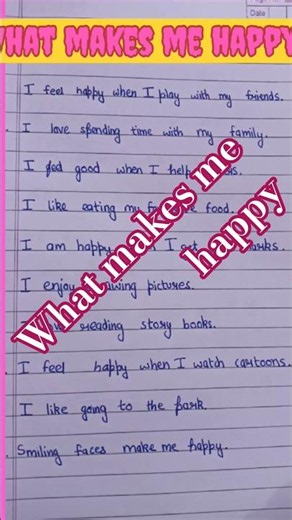 Date
WHAT MAKES ME HAPPY
I feel happy when I play with my friends.
I love spending time with my family.
I feel good when I help
I like eating my food.
I am happy I
I enjoy drawing pictures.
love reading story books.
I feel happy when I watch cartoons.
I like going to the park.
Smiling faces make me happy.
What makes me
happy